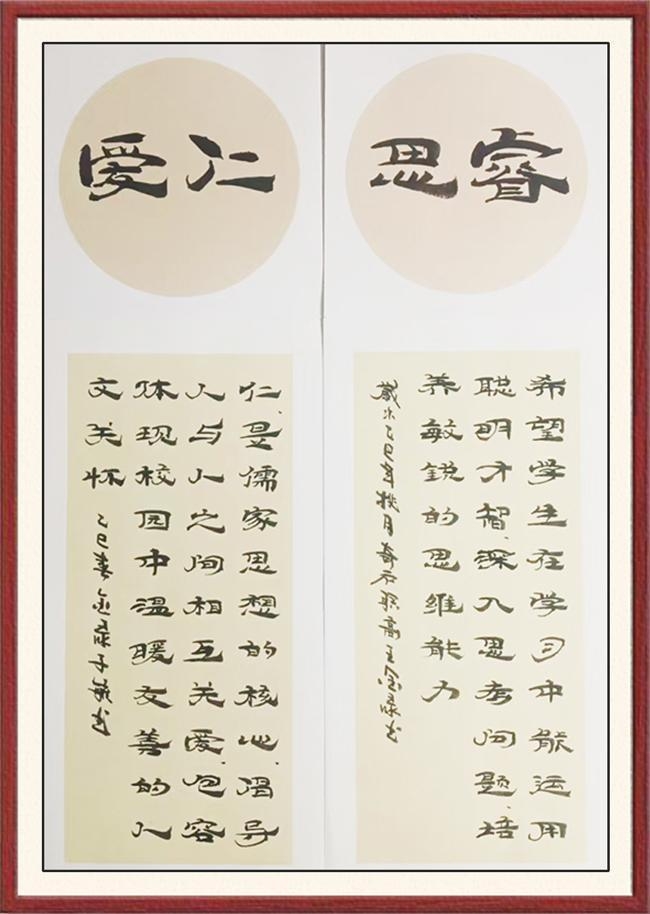 睿思
希望学生在学习中能运用
聪明才智、深入思考问题、培
养敏锐的思维能力
歲次乙巳年桃月奇石职高王金禄书
仁爱
仁、是儒家思想的核心、倡导
人与人之间相互关爱、包容
体现校园中温暖友善的人
文关怀
乙巳春金禄于书